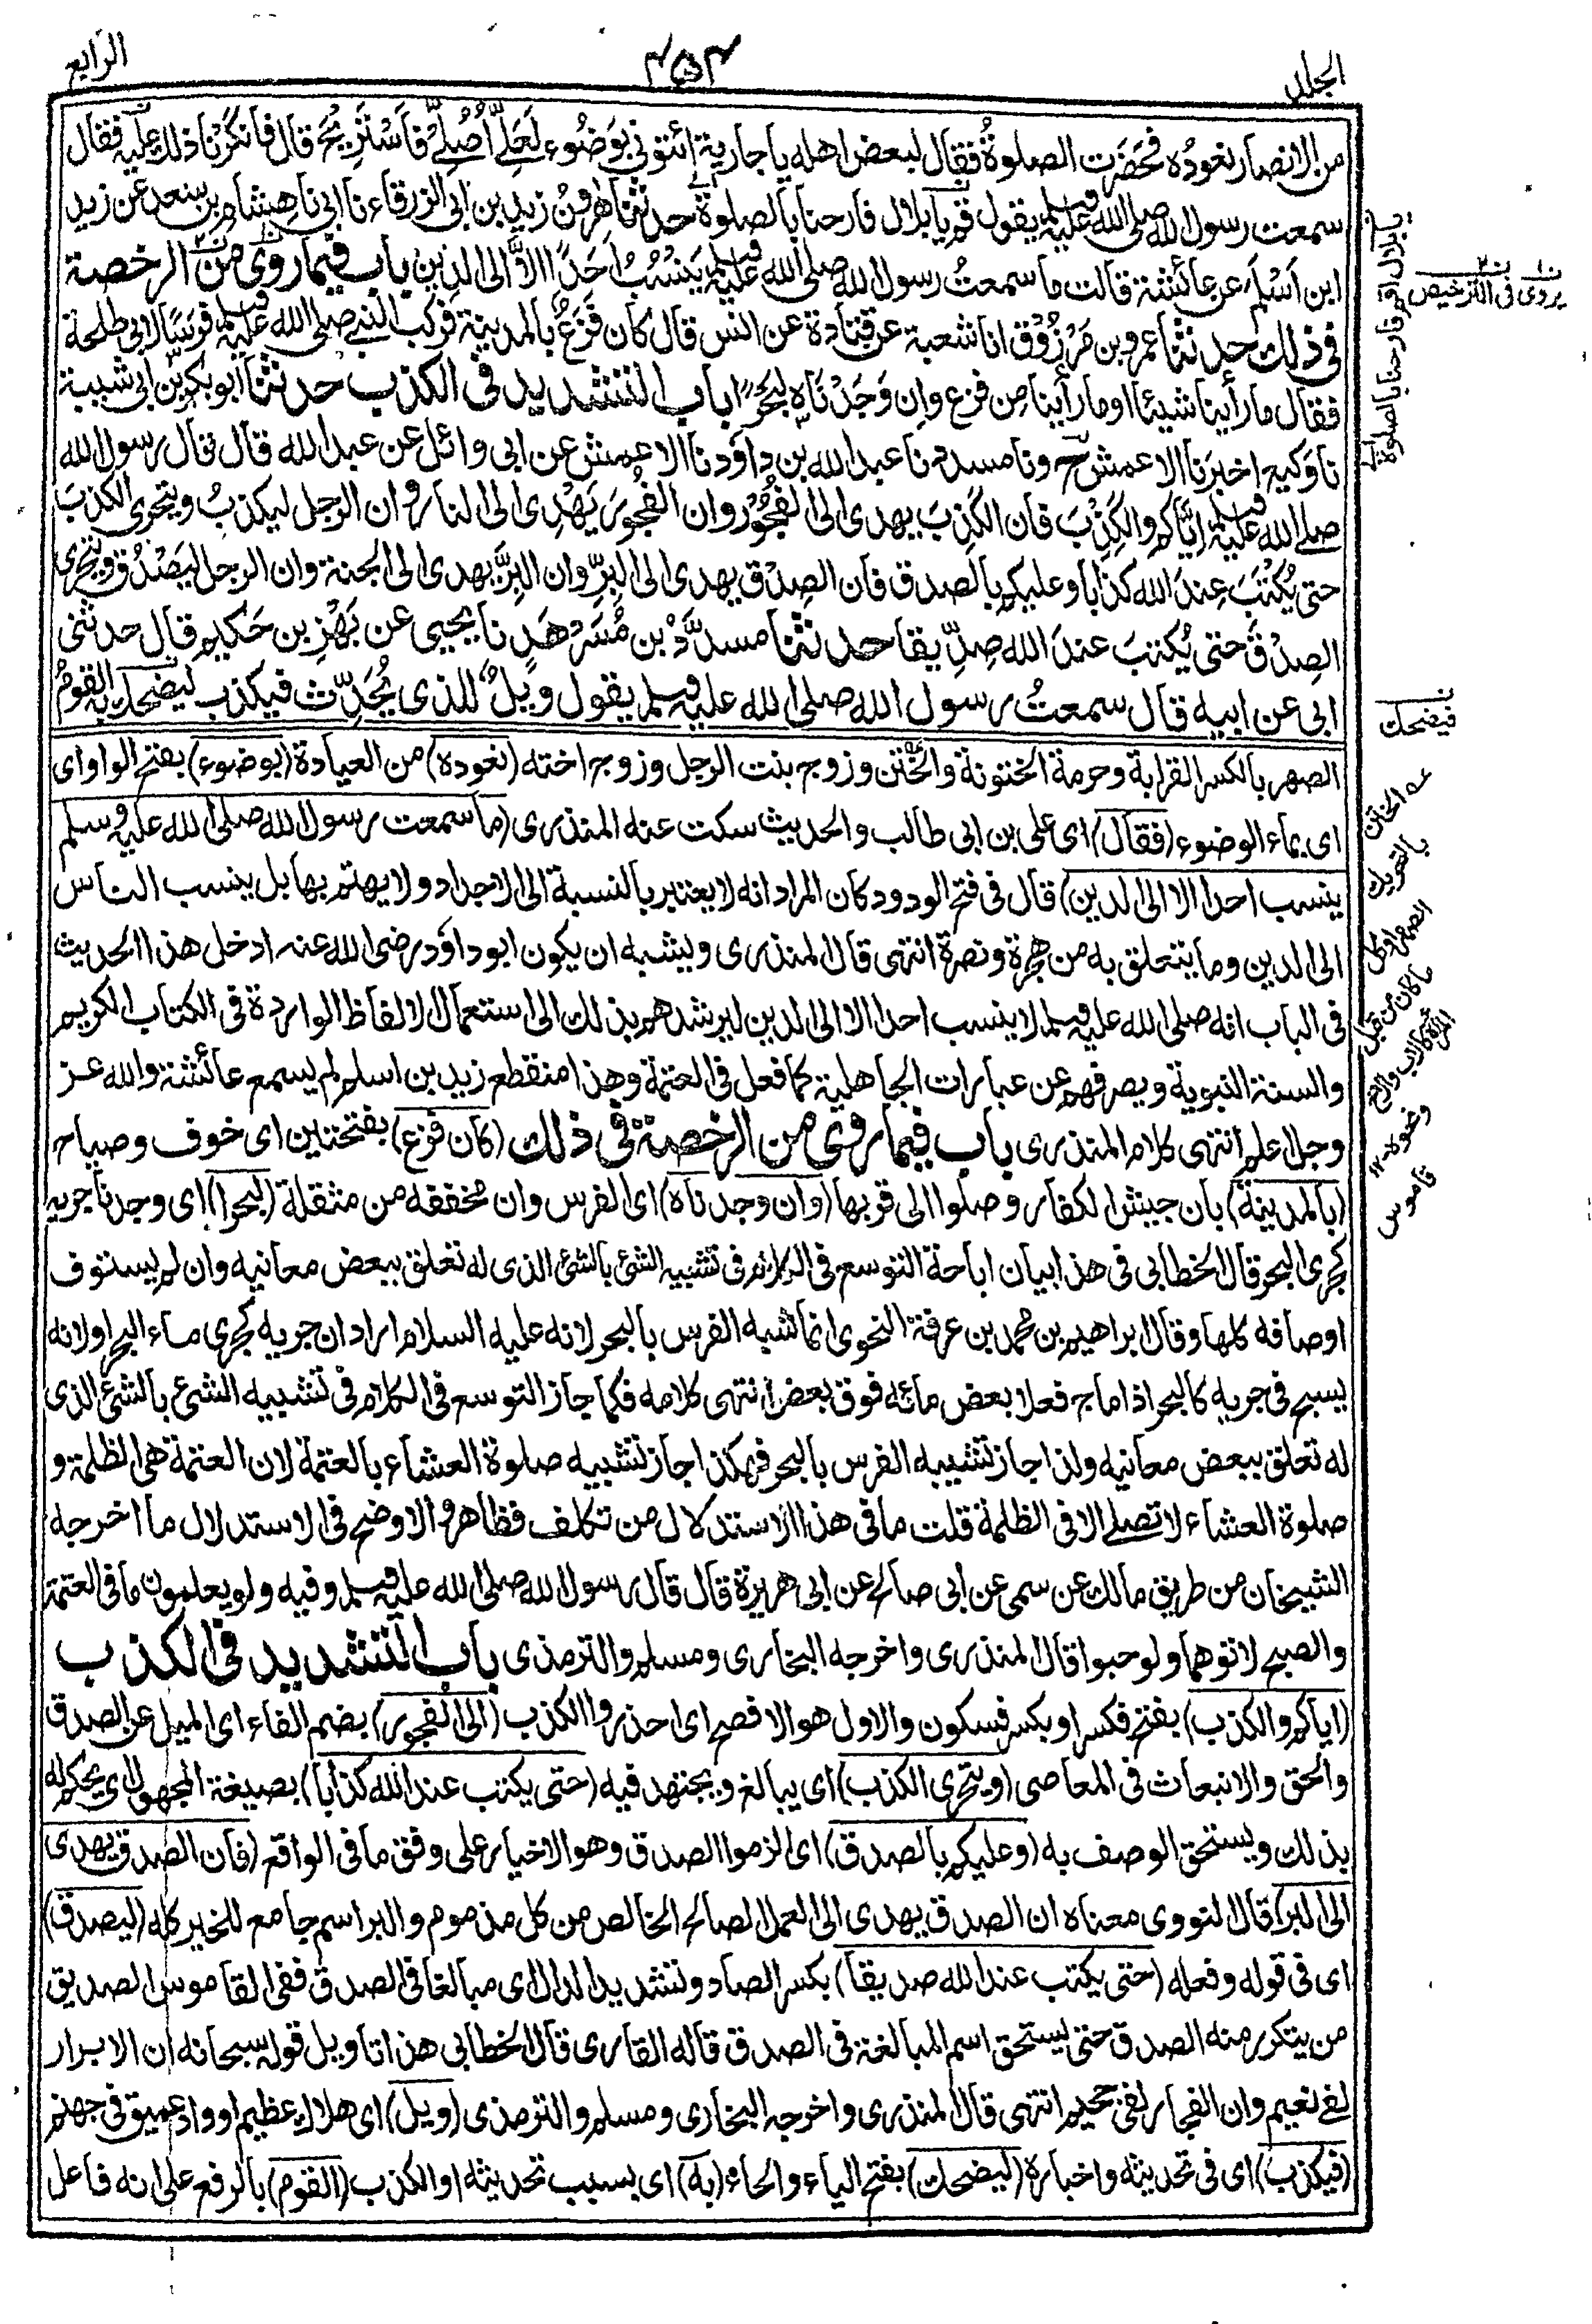 الجلد
٤٥٤
الرابع
من الانصار نعوده فحضرت الصلوة فقال لبعض اهله يا جارية ائتونى بوضوء لعلى اصلى فاستريح قال فانكرنا ذلك عليه فقال
سمعت رسول الله صلى الله عليه وسلم يقول قم يا بلال فارحنا بالصلوة حدثنا هرون بن زيد بن ابى الزرقاء نا ابى نا هشام بن سعد عن زيد
ابن اسلم عن عائشة قالت ما سمعت رسول الله صلى الله عليه وسلم ينسب احدا الا الى الدين باب فيما روى من الرخصة
فى ذلك حدثنا عمرو بن مرزوق انا شعبة عن قتادة عن انس قال كان فزع بالمدينة فركب النبى صلى الله عليه وسلم فرسا لابى طلحة
فقال ما رأينا شيئا او ما رأينا من فزع وان وجدناه لبحرا باب التشديد فى الكذب حدثنا ابو بكر بن ابى شيبة
نا وكيع اخبرنا الاعمش ح ونا مسدد نا عبد الله بن داود نا الاعمش عن ابى وائل عن عبد الله قال قال رسول الله
صلى الله عليه وسلم اياكم والكذب فان الكذب يهدى الى الفجور وان الفجور يهدى الى النار وان الرجل ليكذب ويتحرى الكذب
حتى يكتب عند الله كذابا وعليكم بالصدق فان الصدق يهدى الى البر وان البر يهدى الى الجنة وان الرجل ليصدق ويتحرى
الصدق حتى يكتب عند الله صديقا حدثنا مسدد بن مسرهد نا يحيى عن بهز بن حكيم قال حدثنى
ابى عن ابيه قال سمعت رسول الله صلى الله عليه وسلم يقول ويل للذى يحدث فيكذب ليضحك به القوم
الصهر بالكسر القرابة وحرمة الختونة والختن وزوج بنت الرجل وزوج اخته (نعوده) من العيادة (بوضوء) بفتح الواو اى
اى بماء الوضوء (فقال) اى على بن ابى طالب والحديث سكت عنه المنذرى (ما سمعت رسول الله صلى الله عليه وسلم
ينسب احدا الا الى الدين) قال فى فتح الودود كان المراد انه لا يعتبر بالنسبة الى الاجداد ولا يهتم بها بل ينسب الناس
الى الدين وما يتعلق به من هجرة ونصرة انتهى قال المنذرى ويشبه ان يكون ابو داود رضى الله عنه ادخل هذا الحديث
فى الباب انه صلى الله عليه وسلم لا ينسب احدا الا الى الدين ليرشدهم بذلك الى استعمال الالفاظ الواردة فى الكتاب الكريم
والسنة النبوية ويصرفهم عن عبارات الجاهلية كما فعل فى العتمة وهذا منقطع زيد بن اسلم لم يسمع عائشة والله عز
وجل اعلم انتهى كلام المنذرى باب فيما روى من الرخصة فى ذلك (كان فزع) بفتحتين اى خوف وصياح
(بالمدينة) بان جيش الكفار وصلوا الى قربها (وان وجدناه) اى الفرس وان مخففة من مثقلة (لبحرا) اى وجدنا جريه
كجرى البحر قال الخطابى فى هذا بيان اباحة التوسع فى الكلام فى تشبيه الشئ بالشئ الذى له تعلق ببعض معانيه وان لم يستوف
اوصافه كلها وقال ابراهيم بن محمد بن عرفة النحوى انما شبه الفرس بالبحر لانه عليه السلام اراد ان جريه كجرى ماء البحر او لانه
يسبح فى جريه كالبحر اذا ماج فعلا بعض مائه فوق بعض انتهى كلامه فكما جاز التوسع فى الكلام فى تشبيه الشئ بالشئ الذى
له تعلق ببعض معانيه ولذا جاز تشبيه الفرس بالبحر فهكذا جاز تشبيه صلوة العشاء بالعتمة لان العتمة هى الظلمة و
صلوة العشاء لا تصلى الا فى الظلمة قلت ما فى هذا الاستدلال من تكلف فظاهر والاوضح فى الاستدلال ما اخرجه
الشيخان من طريق مالك عن سمى عن ابى صالح عن ابى هريرة قال قال رسول الله صلى الله عليه وسلم وفيه ولو يعلمون ما فى العتمة
والصبح لاتوهما ولو حبوا قال المنذرى واخرجه البخارى ومسلم والترمذى باب التشديد فى الكذب
(اياكم والكذب) بفتح فكسر او بكسر فسكون والاول هو الافصح اى احذروا الكذب (الى الفجور) بضم الفاء اى الميل عن الصدق
والحق والانبعاث فى المعاصى (ويتحرى الكذب) اى يبالغ ويجتهد فيه (حتى يكتب عند الله كذابا) بصيغة المجهول اى يحكم له
بذلك ويستحق الوصف به (وعليكم بالصدق) اى الزموا الصدق وهو الاخبار على وفق ما فى الواقع (فان الصدق يهدى
الى البر) قال النووى معناه ان الصدق يهدى الى العمل الصالح الخالص من كل مذموم والبر اسم جامع للخير كله (ليصدق)
اى فى قوله وفعله (حتى يكتب عند الله صديقا) بكسر الصاد وتشديد الدال اى مبالغا فى الصدق ففى القاموس الصديق
من يتكرر منه الصدق حتى يستحق اسم المبالغة فى الصدق قاله القارى قال الخطابى هذا تاويل قوله سبحانه ان الابرار
لفى نعيم وان الفجار لفى جحيم انتهى قال المنذرى واخرجه البخارى ومسلم والترمذى (ويل) اى هلاك عظيم او واد عميق فى جهنم
(فيكذب) اى فى تحديثه واخباره (ليضحك) بفتح الياء والحاء (به) اى بسبب تحديثه او الكذب (القوم) بالرفع على انه فاعل
يا بلال اقم فارحنا بالصلوة
يروى فى الترخيص
فيضحك
عه الختن
بالتحريك
الصهر او كل
ما كان من قبل
المرأة كالاب والاخ
ونحوه ١٢
قاموس